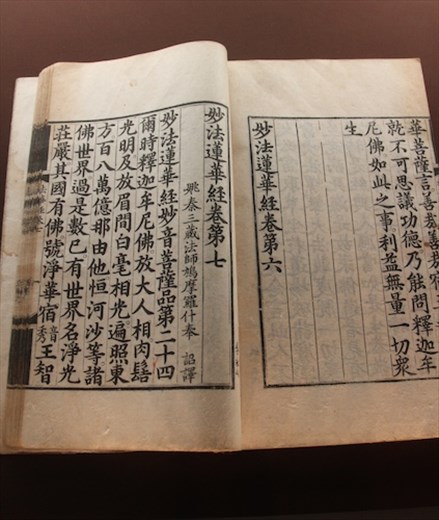 華菩薩言善哉善哉宿
乾不可思議功德乃能問釋迦牟
尼佛如此之事利益無量一切衆
生
妙法蓮華經卷第六
妙法蓮華經卷第七
姚秦三藏法師鳩摩羅什奉 詔譯
妙法蓮華經妙音菩薩品第二十四
爾時釋迦牟尼佛放大人相肉髻
光明及放眉間白毫相光遍照東
方百八萬億那由他恒河沙等諸
佛世界過是數已有世界名淨光
莊嚴其國有佛號淨華宿音秀王智